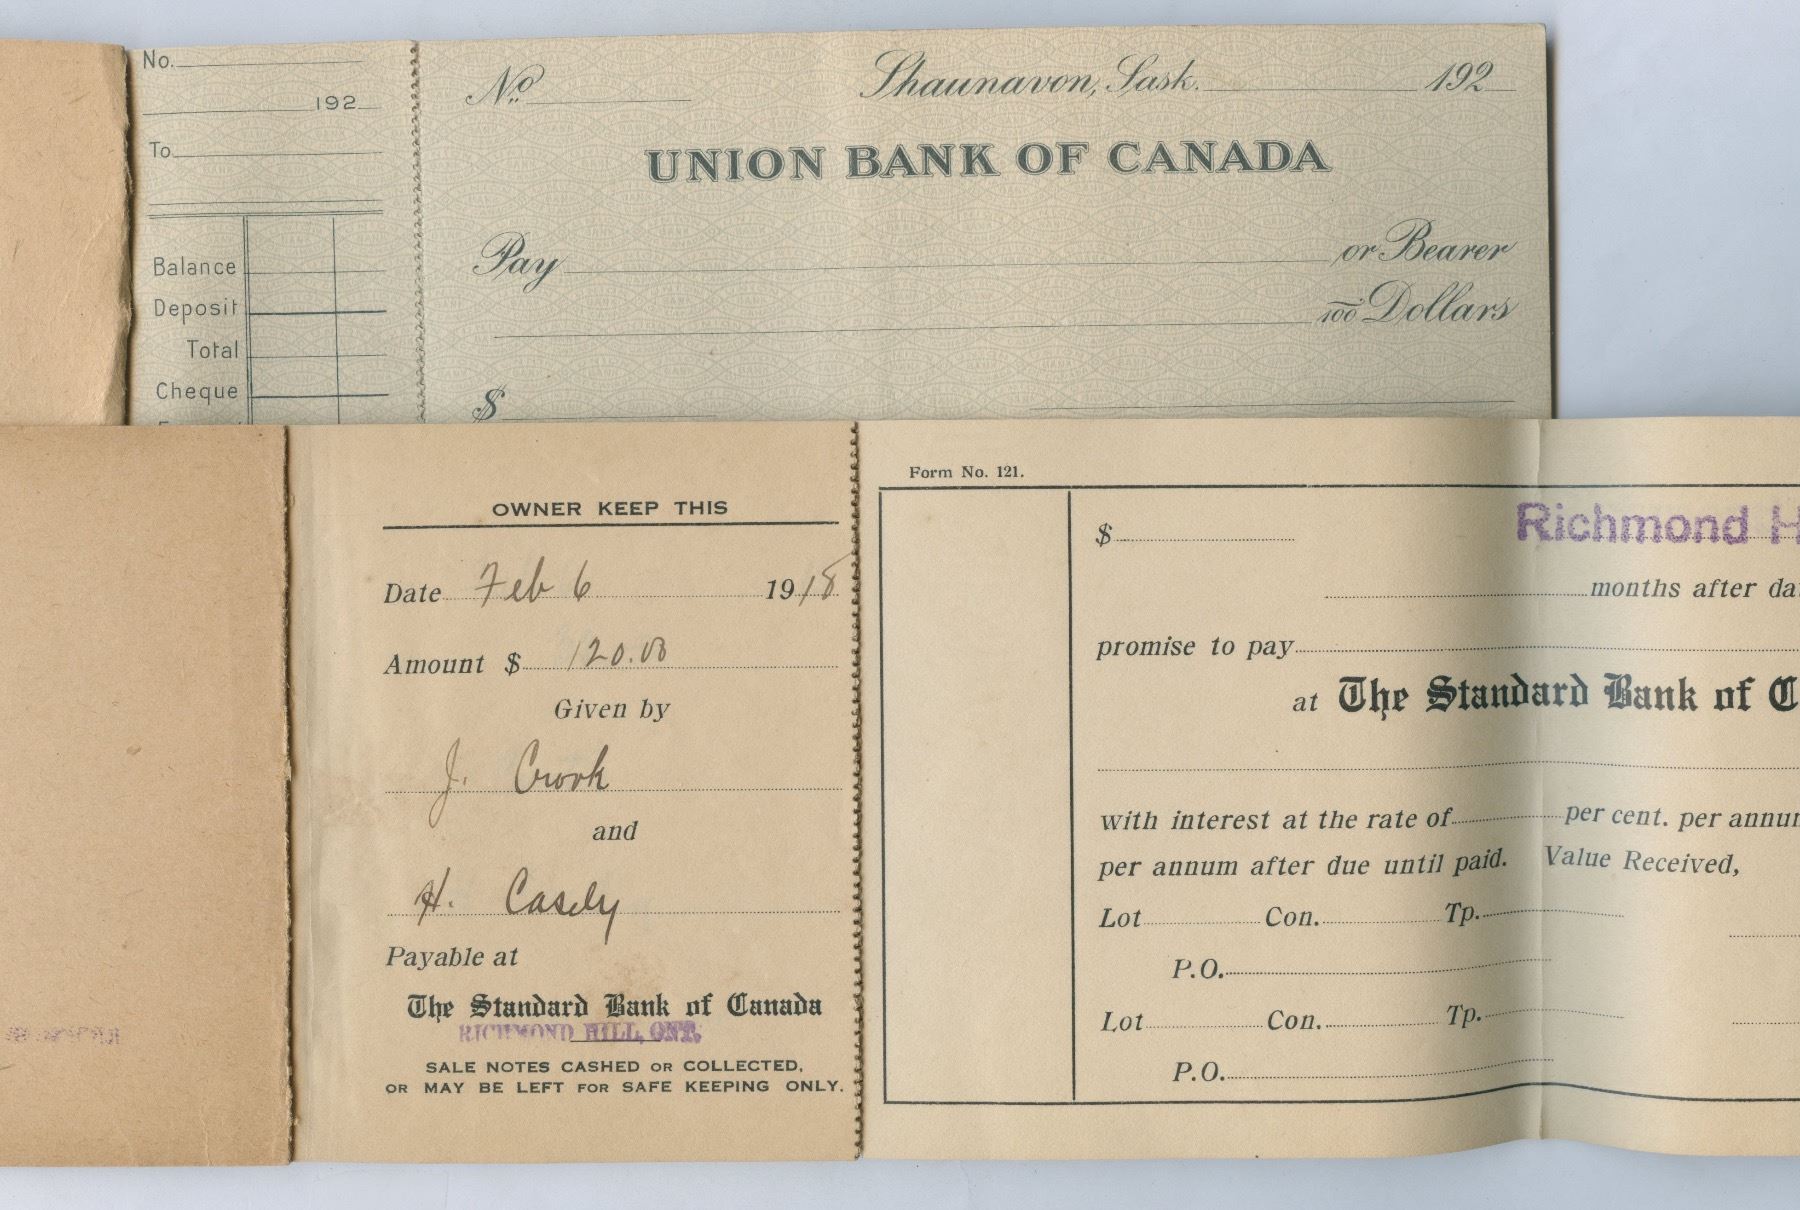 No.
192
To
Balance
Deposit
Total
Cheque
No. Shaunavon, Sask. 192
UNION BANK OF CANADA
Pay or Bearer
100 Dollars
$
OWNER KEEP THIS
Date Feb 6 1918
Amount $ 120.00
Given by
J. Crook
and
H. Casely
Payable at
The Standard Bank of Canada
RICHMOND HILL, ONT.
SALE NOTES CASHED OR COLLECTED,
OR MAY BE LEFT FOR SAFE KEEPING ONLY.
Form No. 121.
$ Richmond H
months after da
promise to pay
at The Standard Bank of C
with interest at the rate of per cent. per annu
per annum after due until paid. Value Received,
Lot Con. Tp.
P.O.
Lot Con. Tp.
P.O.